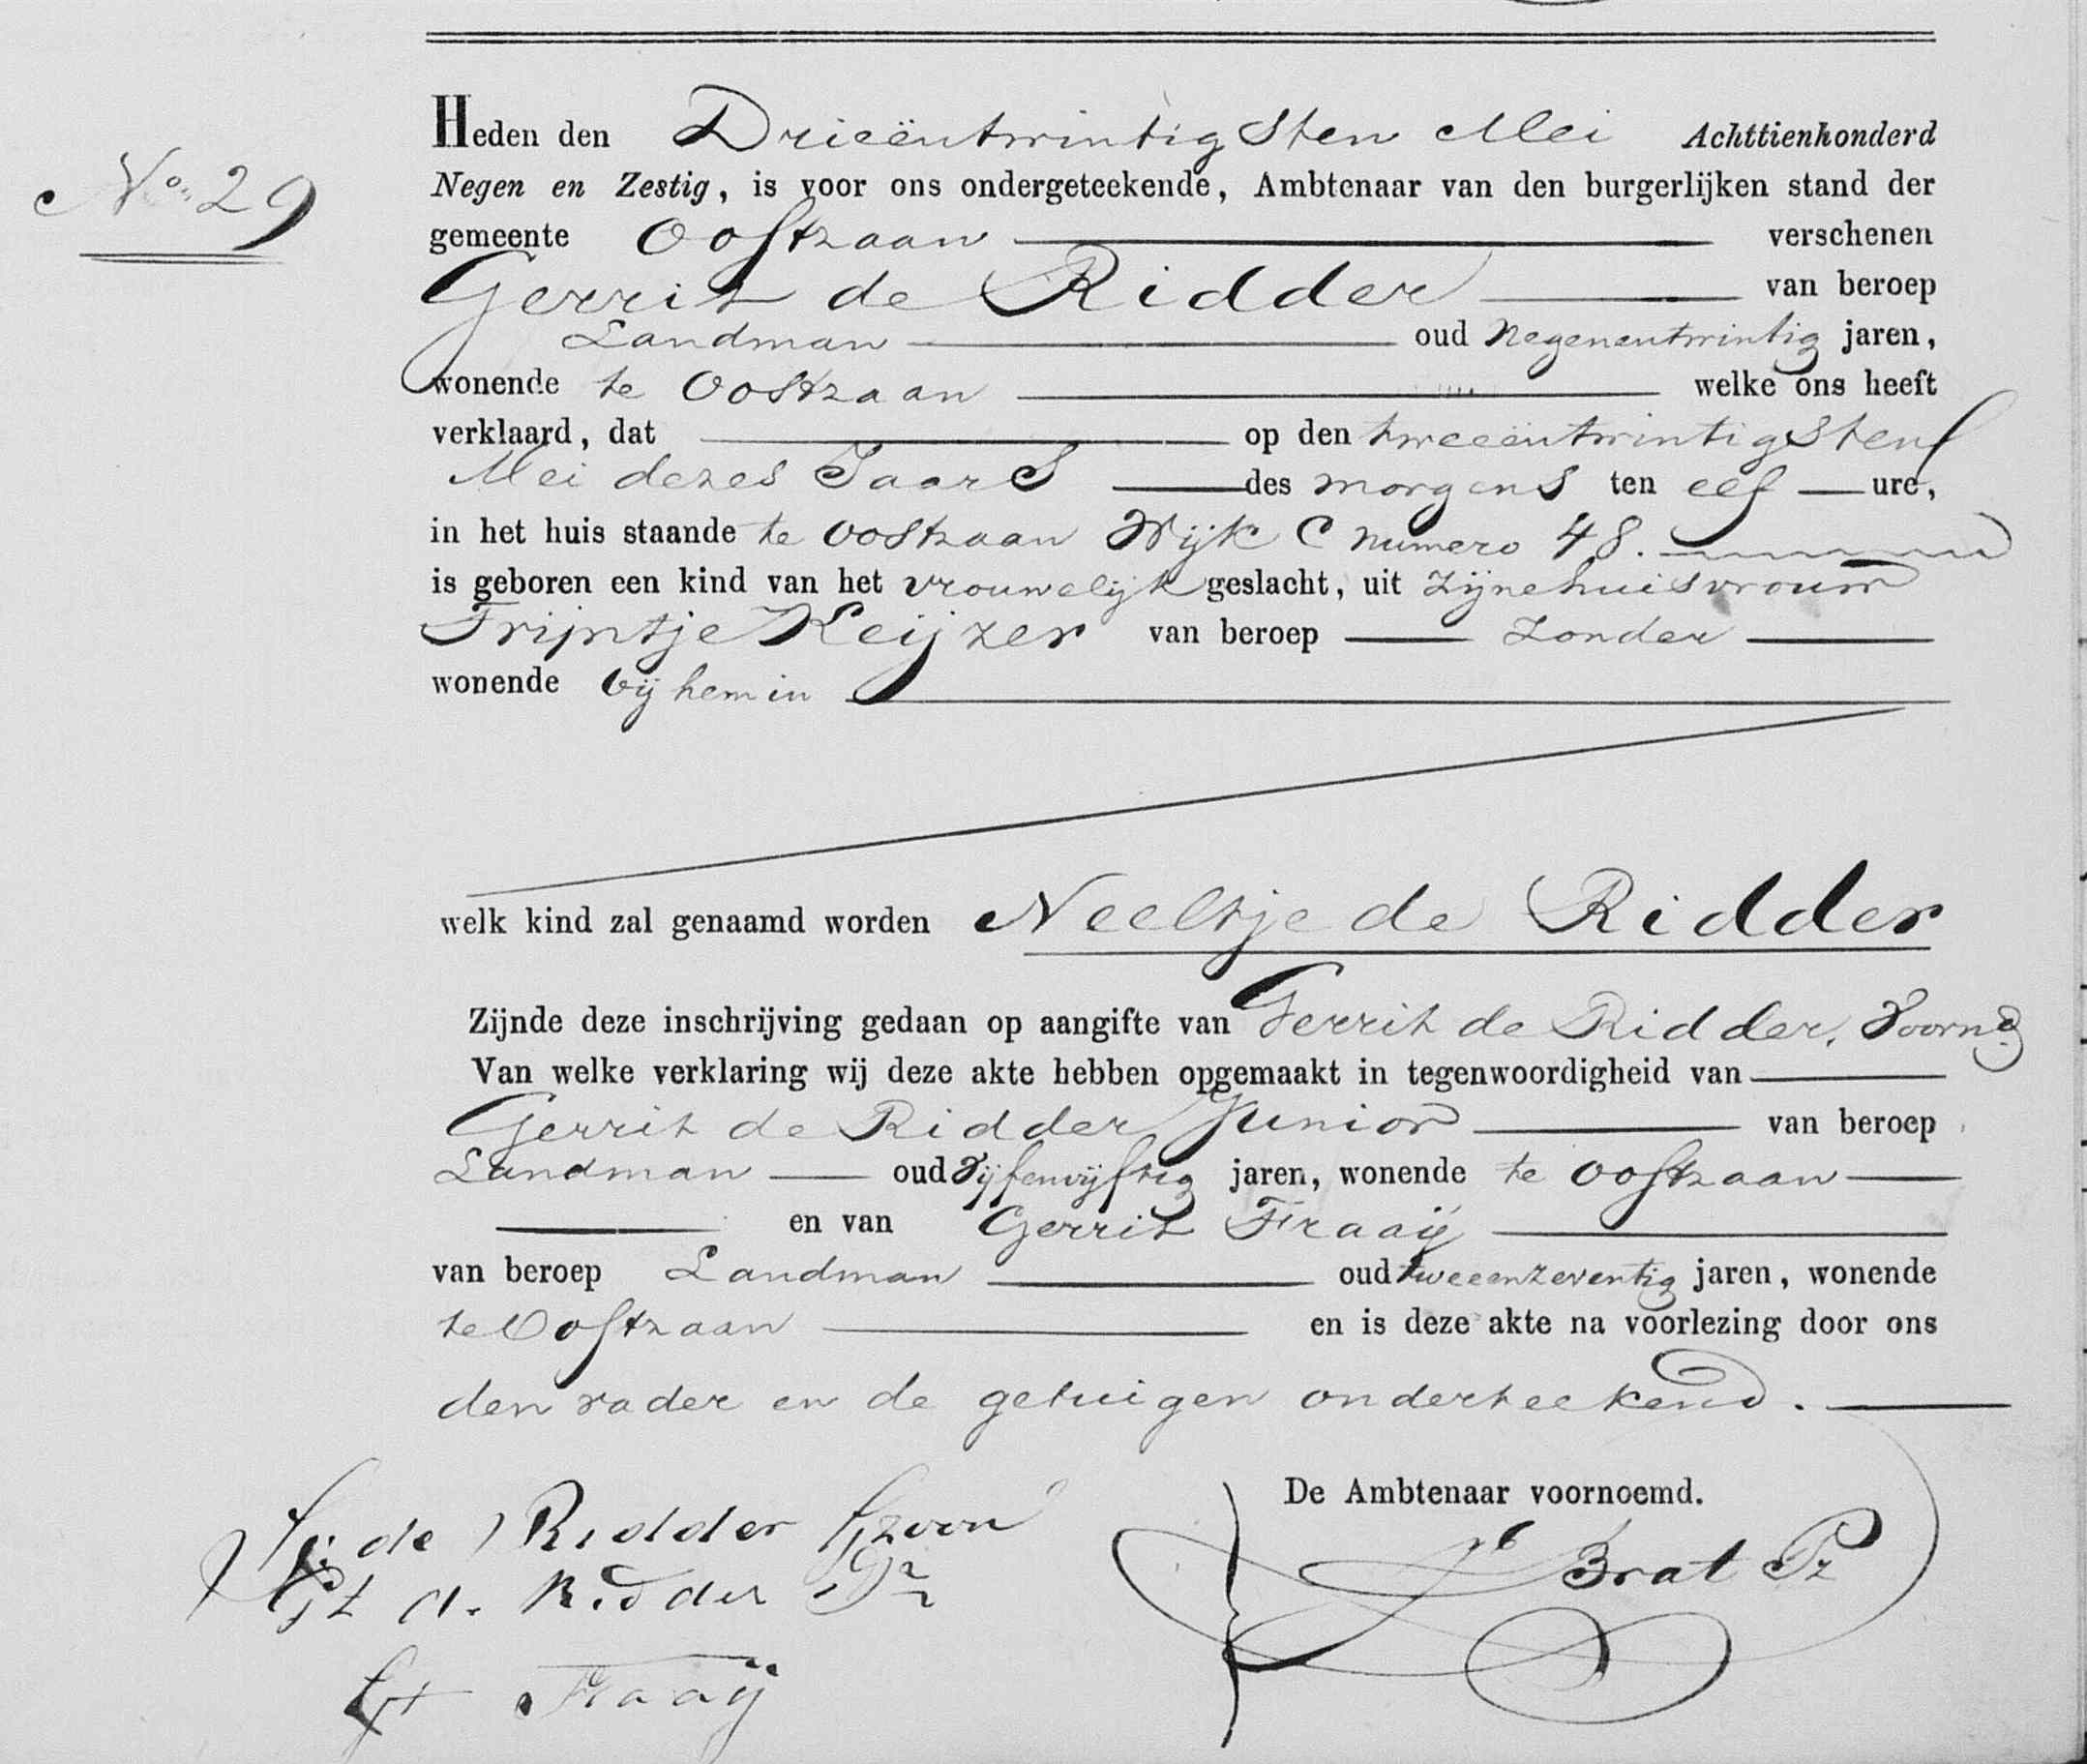 No. 29
Heden den Drieëntwintigsten Mei Achttienhonderd
Negen en Zestig, is voor ons ondergeteekende, Ambtenaar van den burgerlijken stand der
gemeente Oostzaan verschenen
Gerrit de Ridder van beroep
Landman oud Negenentwintig jaren,
wonende te Oostzaan welke ons heeft
verklaard, dat op den tweeëntwintigsten
Mei dezes Jaars des morgens ten elf ure,
in het huis staande te Oostzaan Wijk C numero 48.
is geboren een kind van het vrouwelijk geslacht, uit Zijne huisvrouw
Trijntje Keijzer van beroep Zonder
wonende bij hem in
welk kind zal genaamd worden Neeltje de Ridder
Zijnde deze inschrijving gedaan op aangifte van Gerrit de Ridder, Voornd.
Van welke verklaring wij deze akte hebben opgemaakt in tegenwoordigheid van
Gerrit de Ridder Junior van beroep
Landman oud Vijfenvijftig jaren, wonende te Oostzaan
en van Gerrit Fraaij
van beroep Landman oud tweeenzeventig jaren, wonende
te Oostzaan en is deze akte na voorlezing door ons
den vader en de getuigen onderteekend.
De Ambtenaar voornoemd.
de Ridder Gzoon
Brat Pz
Gt d. Ridder
Gt Fraaij